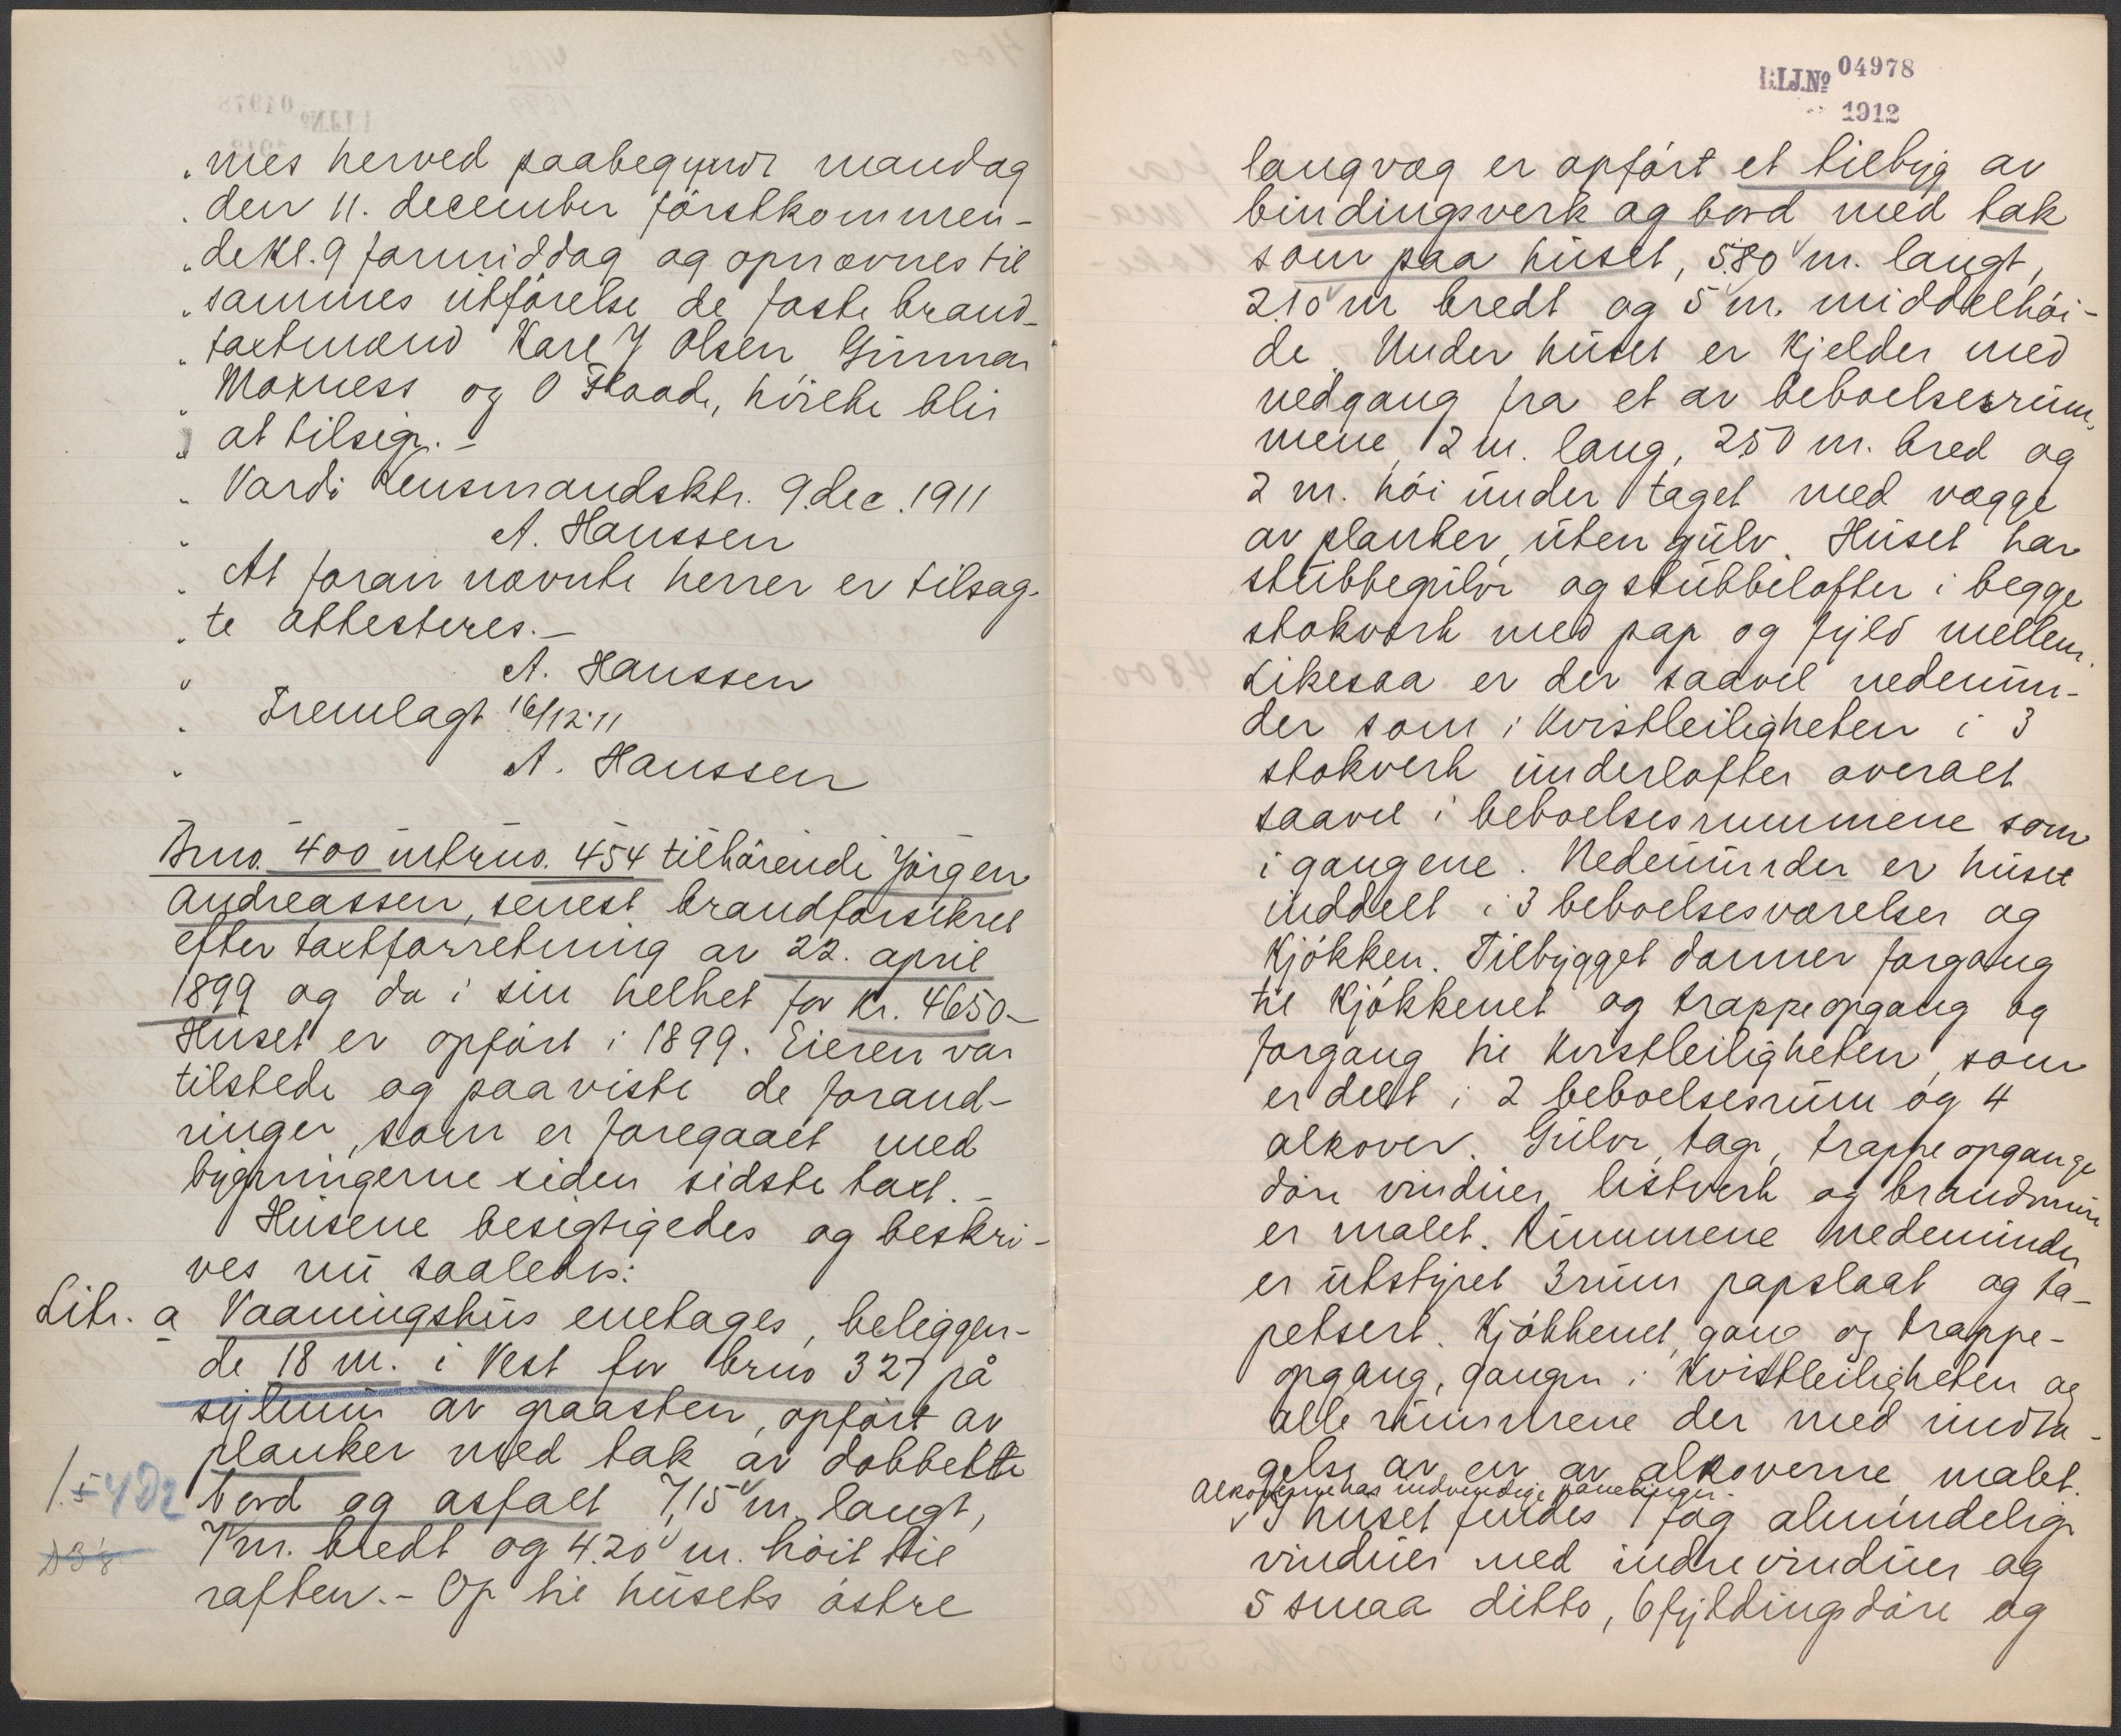 „ mes herved paabegyndt mandag
„ den 11. december förstkommen-
„ de kl. 9 formiddag og opnævnes til
„ sammes utförelse de faste brand-
„ taxtmænd Karl J Olsen, Gunnar
„ Moxness og O Flaade, hvilke blir
„ at tilsige. -
„ Vardö Lensmandsktr. 9. dec. 1911
„ A. Hanssen
„ At foran nævnte herrer er tilsag-
„ te attesteres. -
„ A. Hanssen
„ Fremlagt 16/12.11
„ A. Hanssen
Brno. 400 mtrno. 454 tilhörende Jörgen
Andreassen, senest brandforsikret
efter taxtforretning av 22. april
1899 og da i sin helhet for kr. 4650 -
Huset er opfört i 1899. Eieren var
tilstede og paaviste de forand-
ringer, som er foregaaet med
bygningerne siden sidste taxt. -
Husene besigtigedes og beskri-
ves nu saaledes:
Litr. a Vaaningshus enetages, beliggen-
de 18 m. i Vest for brno 327 på
sylmur av graasten, opfört av
planker med tak av dobbelte
bord og asfalt 7,15 m. langt,
7 m. bredt og 4.20 m. höit til
raften. - Op til husets östre
R.L.J.No 04978
1912
langvæg er opfört et tilbyg av
bindingsverk og bord med tak
som paa huset, 5.80 m. langt,
2.10 m bredt og 5 m. middelhöi-
de. Under huset er Kjelder med
nedgang fra et av beboelsesrum-
mene, 2 m. lang, 250 m. bred og
2 m. höi under taget med vægge
av planker, uten gulv. Huset har
stubbegulv og stubbelofter i begge
stokverk med pap og fyld mellem.
Likesaa er der saavel nedenun-
der som i Kvistleiligheten i 3
stokverk underlofter overalt
saavel i beboelsesrummene som
i gangene. Nedenunder er huset
inddelt i 3 beboelsesværelser og
Kjökken. Tilbygget danner forgang
til Kjökkenet og trappeopgang og
forgang til Kvistleiligheten, som
er delt i 2 beboelsesrum og 4
alkover. Gulv, tag, trappeopgange
döre vinduer, listverk og brandmure
er malet. Rummene nedenunder
er utstyret 3 rum papslaat og ta-
petsert. Kjökkenet, gang og trappe-
opgang, gangen i Kvistleiligheten og
alle rummene der med undta-
gelse av en av alkoverne malet.
Alkoverne har indvendige panelinger.
I huset findes 7 fag almindelige
vinduer med indrevinduer og
5 smaa ditto, 6 fyldingsdöre og